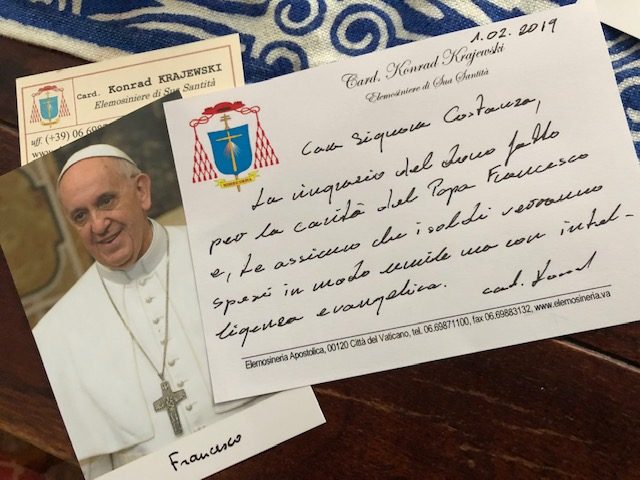 Card. Konrad KRAJEWSKI
Elemosiniere di Sua Santità
uff. (+39) 06.69
www.
Francesco
1.02.2019
Card. Konrad Krajewski
Elemosiniere di Sua Santità
Cara Signora Costanza,
La ringrazio del dono fatto
per la carità del Papa Francesco
e, Le assicuro che i soldi verranno
spesi in modo umile ma con intel-
ligenza evangelica. card. Konrad
Elemosineria Apostolica, 00120 Città del Vaticano, tel. 06.69871100, fax 06.69883132, www.elemosineria.va